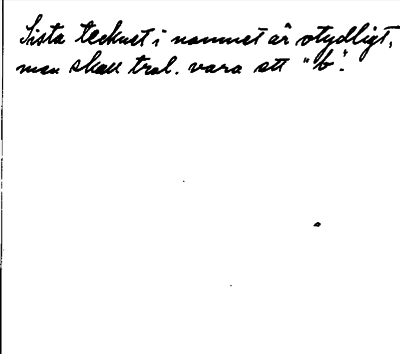 Sista tecknet i namnet är otydligt,
men skall trol. vara ett "b".